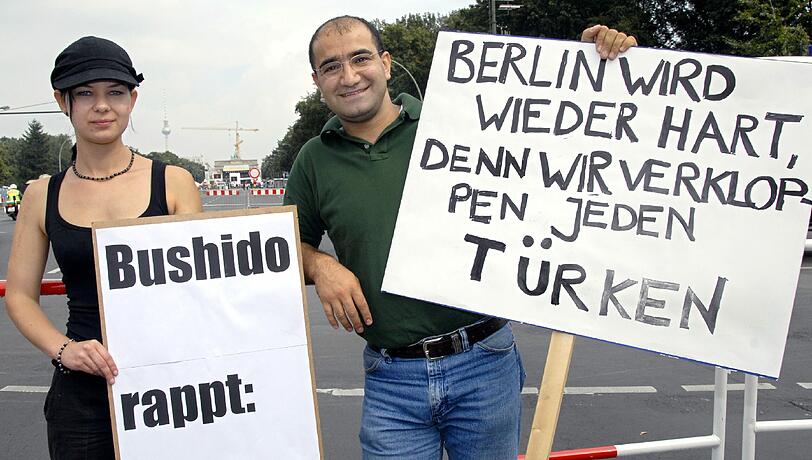 Bushido
rappt:
BERLIN WIRD
WIEDER HART,
DENN WIR VERKLOP-
PEN JEDEN
TÜRKEN